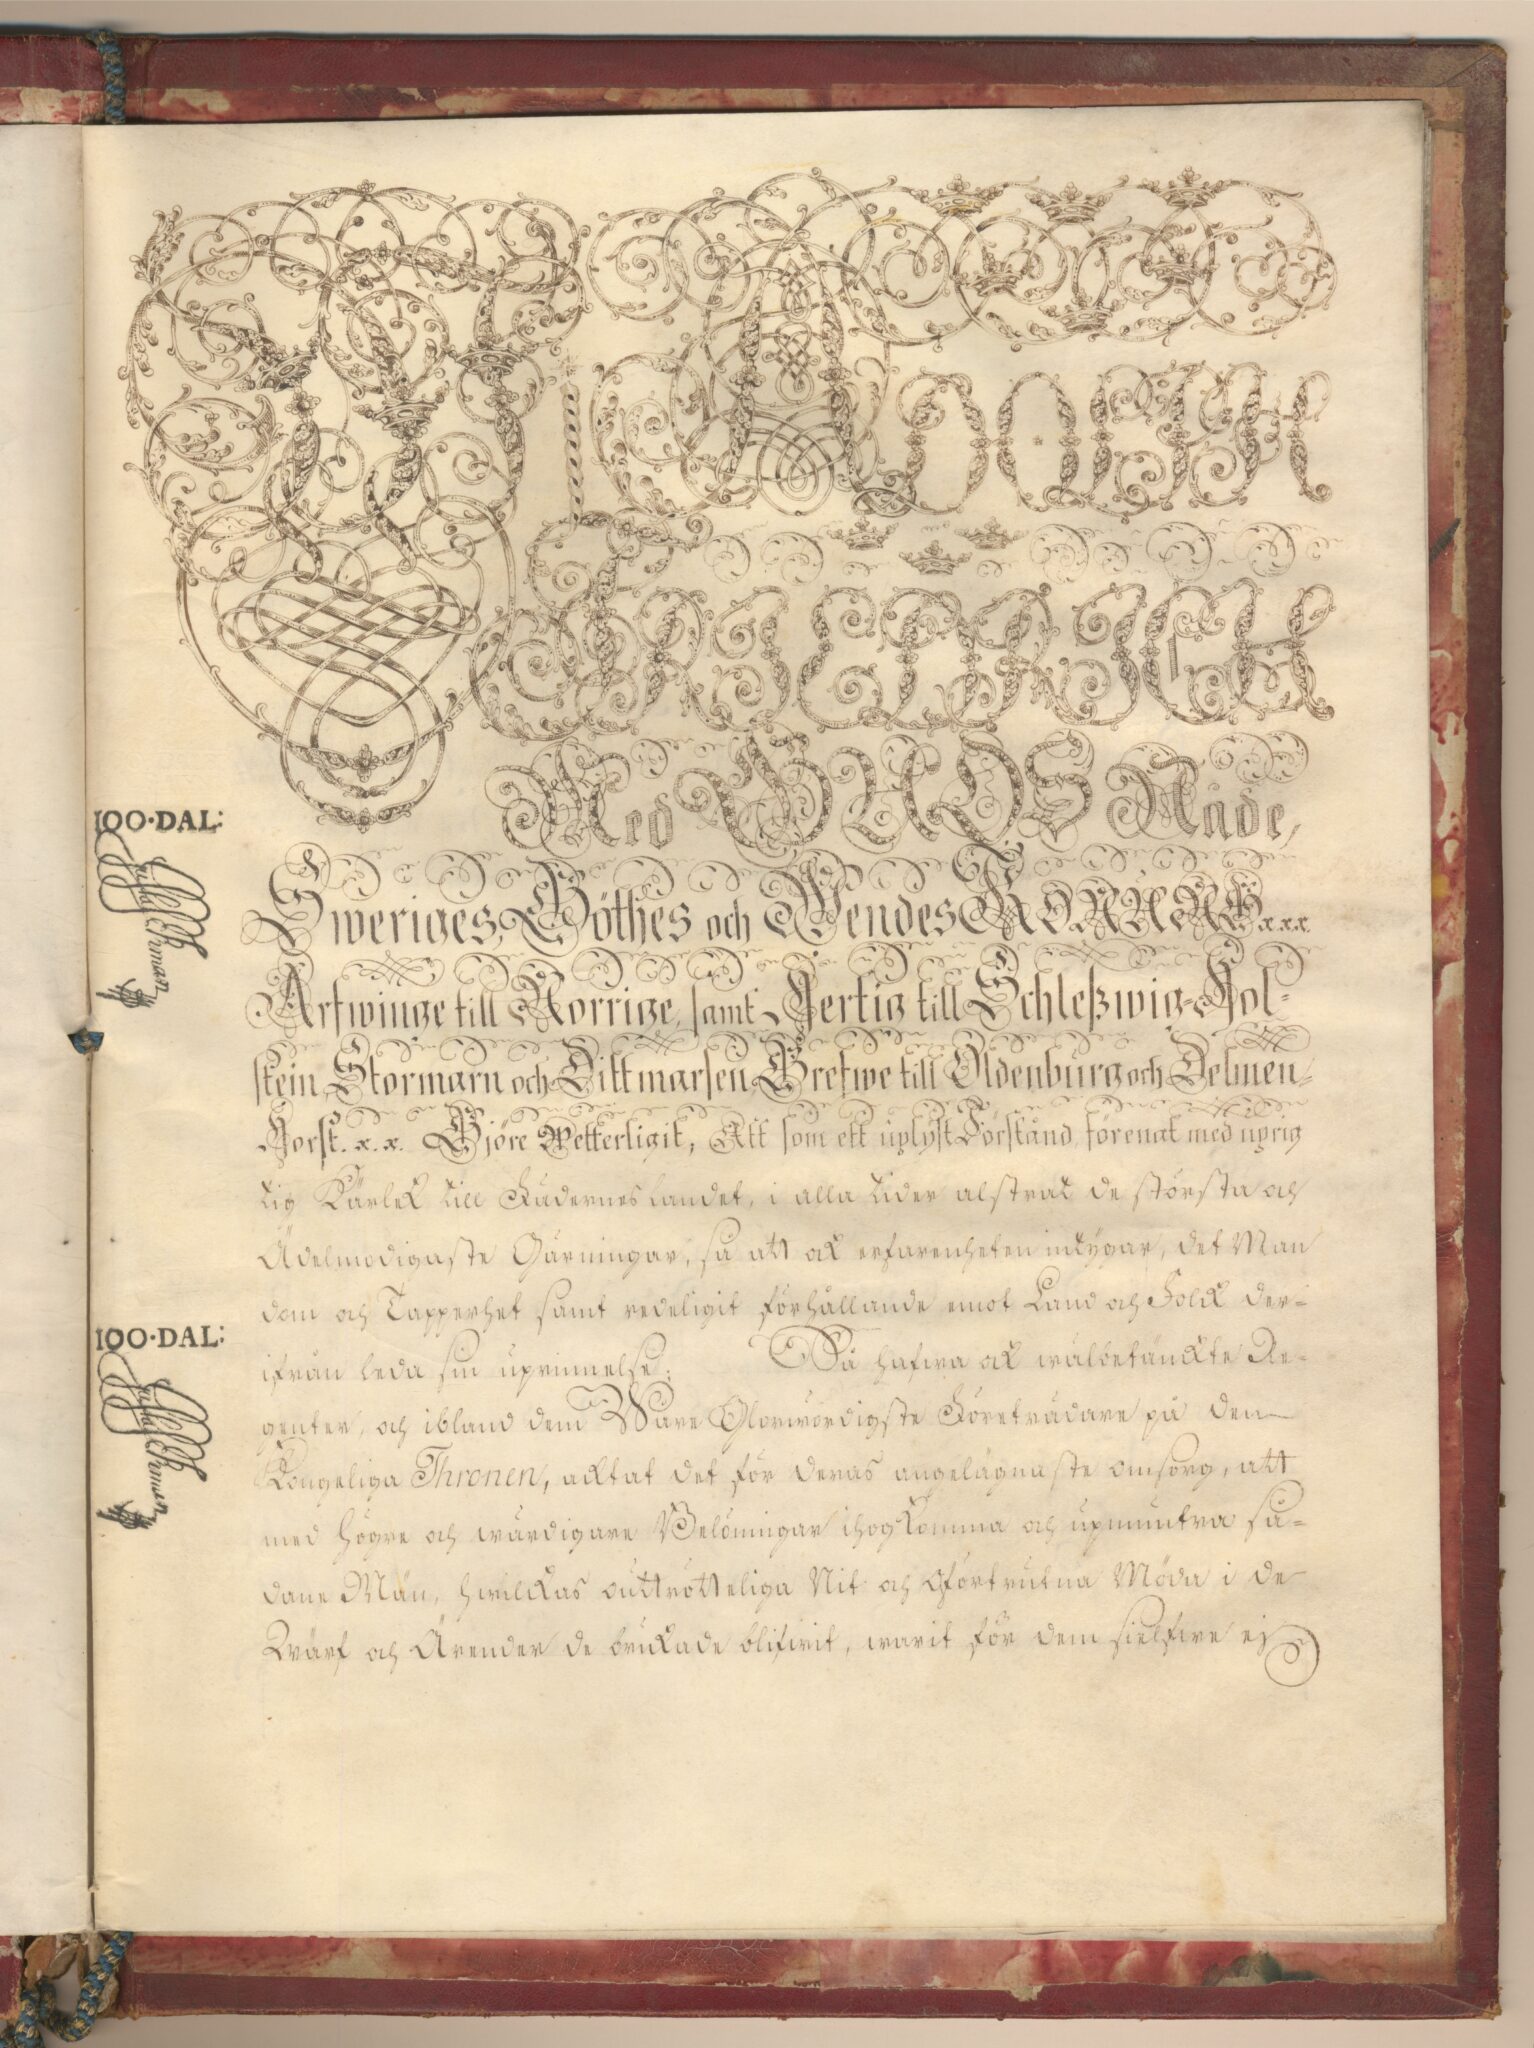 WJ ADOLPH
FRIEDRICH
Med GUDS Nåde,
Sweriges, Göthes och Wendes KONUNG x.x.x.
Arfwinge till Norrige, samt Hertig till Schleßwig-Hol-
stein, Stormarn och Dittmarsen, Grefwe till Oldenburg och Delmen-
Horst. x. x. Gjöre Wetterligit, Att som ett uplyst Förstånd, förenat med uprig
tig Kärlek till Fäderneslandet, i alla tider alstrat de största och
Ädelmodigaste Gärningar, så att ock erfarenheten intygar, det Man
dom och Tapperhet samt redeligit förhållande emot Land och Folck der-
ifrån leda sin uprinnelse; Så hafwa ock wälbetänckte Re-
genter, och ibland dem Wåre Glorwördigste Företrädare på den
Kongeliga Thronen, acktat det för deras angelägnaste omsorg, att
med högre och wärdigare Belöningar ihogkomma och upmuntra så-
dane Män, hwilckas outtrötteliga Nit och oförtrutna Möda i de
Wärf och Ärender de brukade blifwit, warit för dem sielfwe ej
100·DAL:
100·DAL: